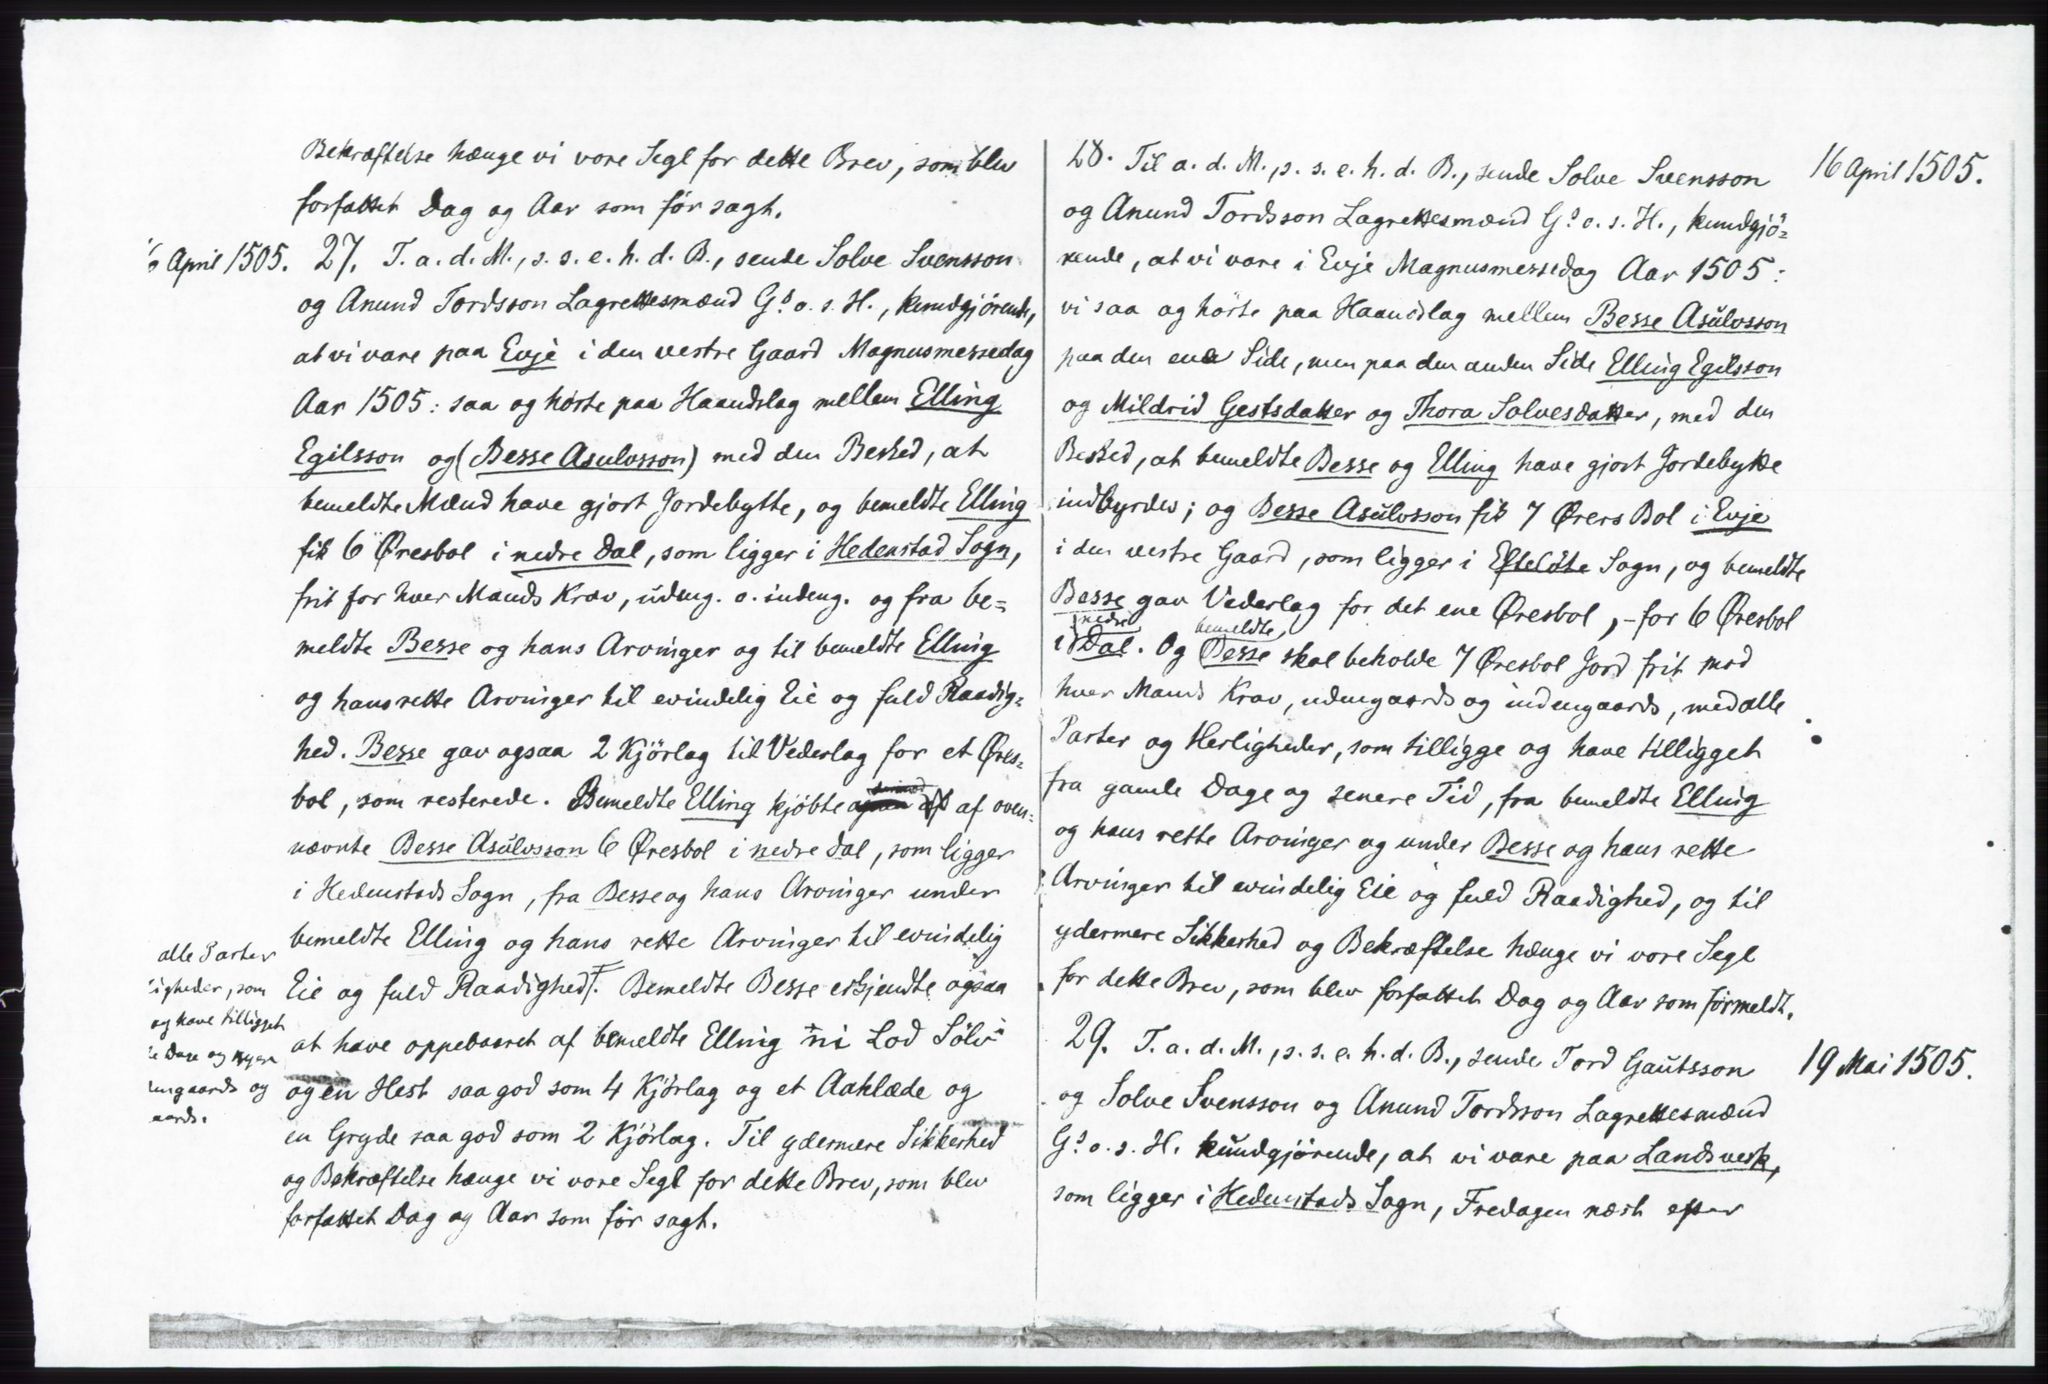 Bekræftelse hænge vi vore Segl for dette Brev, som blev
forfattet Dag og Aar som før sagt.
6 April 1505. 27. T. a. d. M., s. s. e. h. d. B., sende Solve Svensson
og Anund Tordsson Lagrettesmænd Gs. o. s. H., kundgjörende,
at vi vare paa Evje i den vestre Gaard Magnusmessedag
Aar 1505: saa og hørte paa Haandslag mellem Elling
Egilsson og (Besse Asulvsson) med den Besked, at
bemeldte Mænd have gjort Jordebytte, og bemeldte Elling
fik 6 Øresbol i nedre Dal, som ligger i Hedenstad Sogn,
frit for hver Mands Krav, udeng. o. indeng. og fra be=
meldte Besse og hans Arvinger og til bemeldte Elling
og hans rette Arvinger til evindelig Eie og fuld Raadig=
hed. Besse gav ogsaa 2 Kjörlag til Vederlag for et Øres=
bol, som resterede. Bemeldte Elling kjöbte af oven=
nævnte Besse Asülvsson 6 Øresbol i nedre Dal, som ligger
i Hedenstads Sogn, fra Besse og hans Arvinger under
bemeldte Elling og hans rette Arvinger til evindelig
Eie og fuld Raadighed F. Bemeldte Besse erkjendte ogsaa
at have oppebaaret af bemeldte Elling "ni Lod Sölv"
og en Hest saa god som 4 Kjörlag og et Aaklæde og
en Gryde saa god som 2 Kjörlag. Til ydermere Sikkerhed
og Bekræftelse hænge vi vore Segl for dette Brev, som blev
forfattet Dag og Aar som før sagt.
alle Parter
igheder, som
og have tilligget
Dage og nyere
engaards og
aards.
28. Til a. d. M., s. s. e. h. d. B., sende Solve Svensson
16 April 1505.
og Anund Tordsson Lagrettesmænd Gs. o. s. H., kundgjö=
rende, at vi vare i Evje Magnusmessedag Aar 1505:
vi saa og hørte paa Haandslag mellem Besse Asülvsson
paa den ene Side, men paa den anden Side Elling Egilsson
og Mildrid Gestsdatter og Thora Solvesdatter, med den
Besked, at bemeldte Besse og Elling have gjort Jordebytte
indbyrdes; og Besse Asülvsson fik 7 Ørers Bol i Evje
i den vestre Gaard, som ligger i Efteløte Sogn, og bemeldte
Besse gav Vederlag for det ene Øresbol, – for 6 Øresbol
i nedre Dal. Og bemeldte Besse skal beholde 7 Øresbol Jord frit mod
hver Mands Krav, udengaards og indengaards, med alle
Parter og Herligheder, som tilligge og have tilligget
fra gamle Dage og senere Tid, fra bemeldte Elling
og hans rette Arvinger og under Besse og hans rette
Arvinger til evindelig Eie og fuld Raadighed, og til
ydermere Sikkerhed og Bekræftelse hænge vi vore Segl
for dette Brev, som blev forfattet Dag og Aar som førmeldt.
29. T. a. d. M., s. s. e. h. d. B., sende Tord Gaütsson
19 Mai 1505.
og Solve Svensson og Anund Tordsson Lagrettesmænd
Gs. o. s. H. kündgjörende, at vi vare paa Landsverk,
som ligger i Hedenstads Sogn, Fredagen næst efter